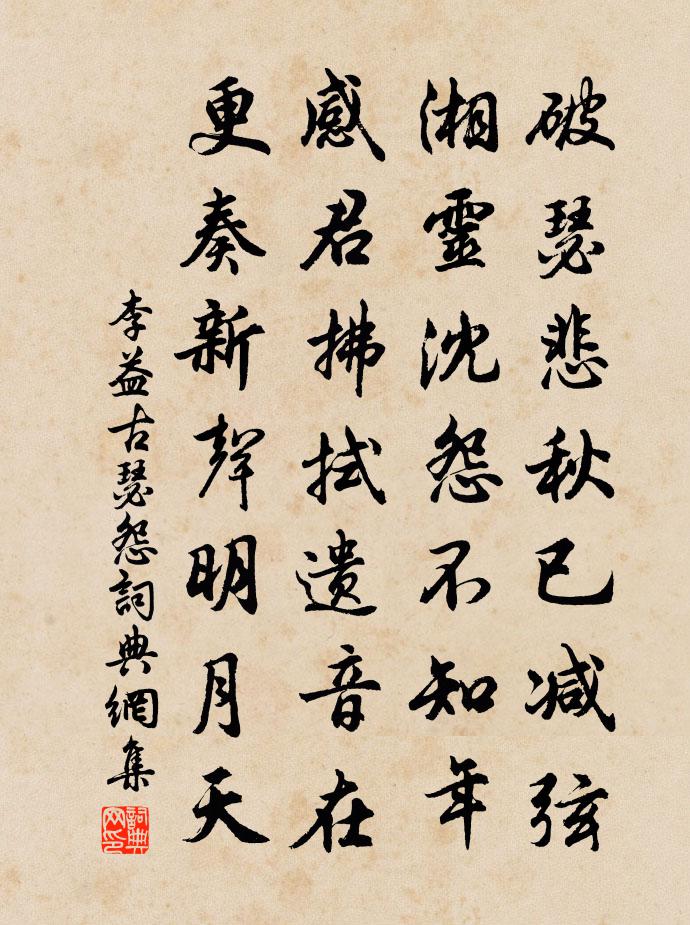 破瑟悲秋已减弦
湘靈沈怨不知年
感君拂拭遺音在
更奏新聲明月天
李益古瑟怨詞典網集
詞典网印